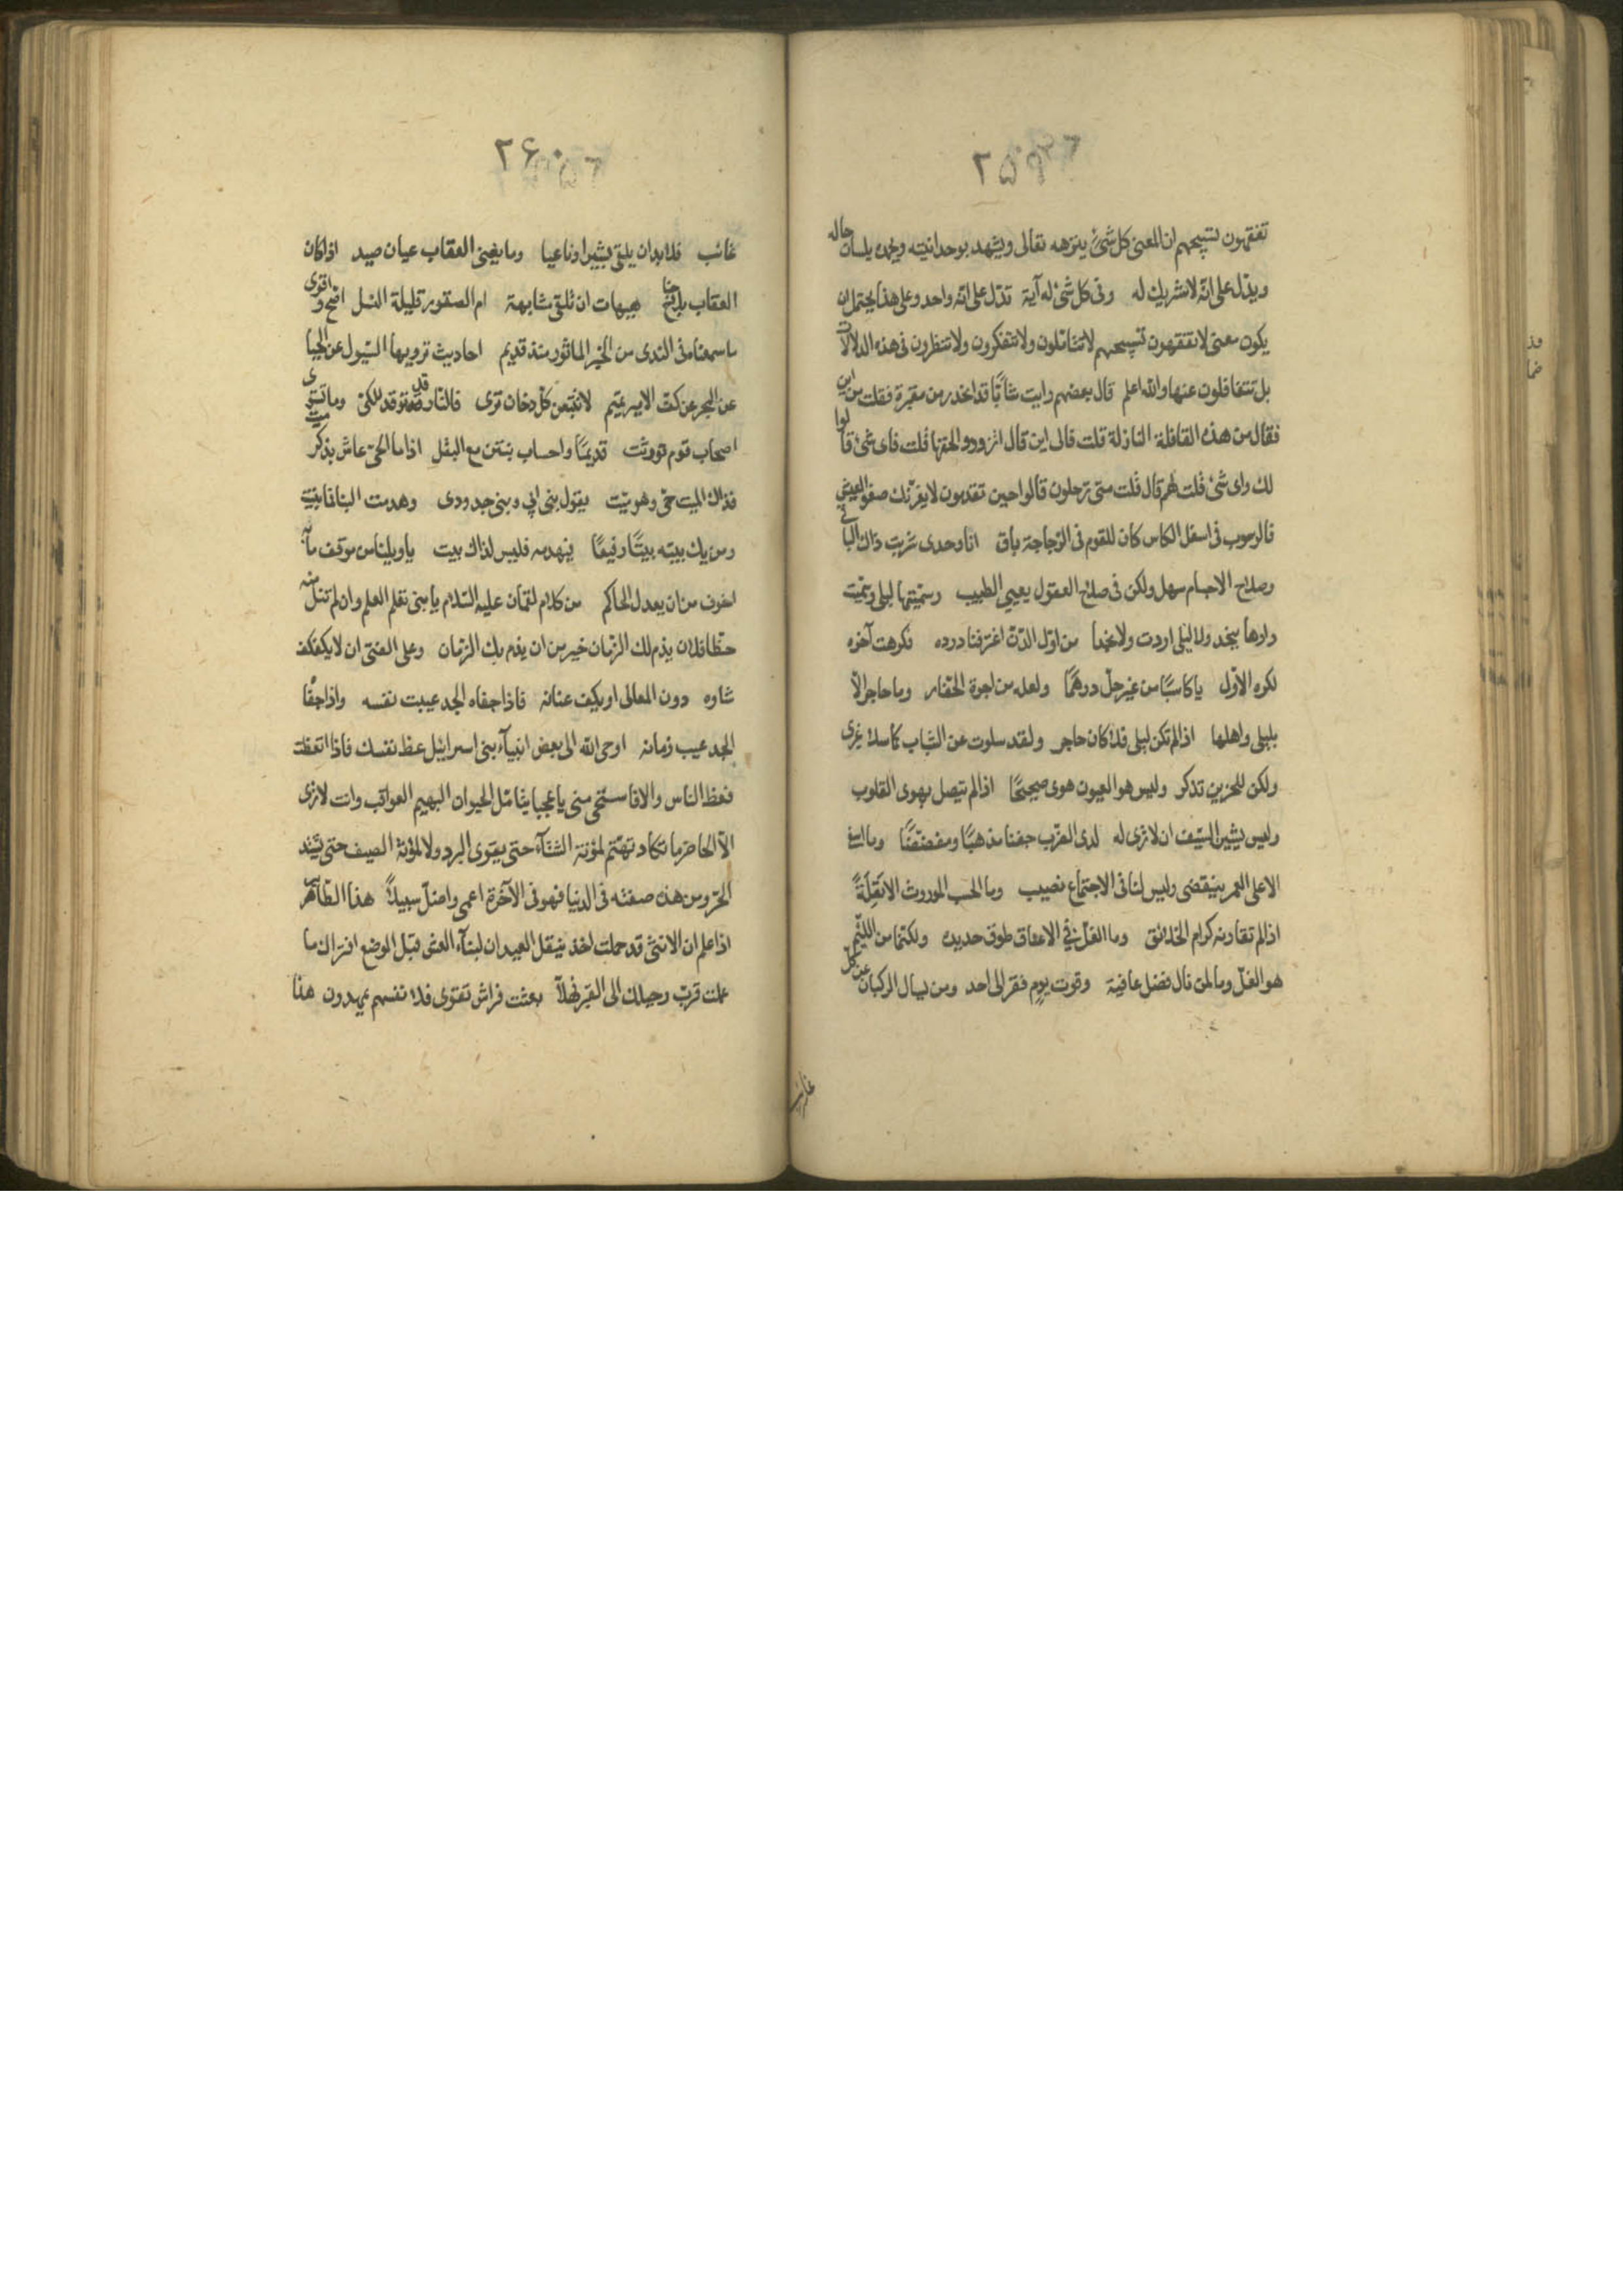 ٢٥٩
تفقهون تسبيحهم ان المعنى كل شئ ينزهه تعالى ويشهد بوحدانيته ويحمده بلسان حاله
ويدل على انّه لا شريك له وفى كل شئ له آية تدّل على انّه واحد وعلى هذا يحتمل ان
يكون معنى لا تفقهون تسبيحهم لا تتاملون ولا تتفكرون ولا تنظرون فى هذه الدلالات
بل تتغافلون عنها والله اعلم قال بعضهم رايت شابّا قد انحدر من مقبرة فقلت من اين
فقال من هذه القافلة النازلة قلت فالى اين قال اتزودو الحقها قلت فاى شئ قالوا
لك واى شئ قلت لهم قال قلت متى ترحلون قالوا حين تقدمون لا يغرّنك صفو العيش
فالرسوب فى اسفل الكاس كان للقوم فى الزجاجة باق انا وحدى شربت ذاك الباقى
وصلاح الاجسام سهل ولكن فى صلاح العقول يعيى الطبيب وسمّيتها ليلى وسمّيت
دارها بنجد ولا ليلى اردت ولا نجدا من اوّل الدّنّ اغترفنا درده فكرهت آخره
لكره الاوّل يا كاسبًا من غير حلّ درهمًا ولعله من اجرة الحفار وما حاجر الّا
بليلى واهلها اذا لم تكن ليلى فلا كان حاجر ولقد سلوت عن الشباب كما سلا غيرى
ولكن للحزين تذكر وليس هو العيون هوى صحيحًا اذا لم يتصل بهوى القلوب
وليس يشين السّيف ان لا ترى له لدى الضرب جفنا مذهبًا ومفضضًا وما اسفى
الا على العمر ينقضى وليس لنا فى الاجتماع نصيب وما الحسب الموروث الا تَقِلّةً
اذا لم تقارنه كرام الخلائق وما الغلّ فى الاعناق طوق حديده ولكنما من اللئيم
هو الغلّ وما لمن نال فضل عافية وقوت يوم فقر الى احد ومن يسال الركبان عن كل
غائب
٢۶٠
غائب فلا بد ان يلقى بشيرا وناعيا وما يغنى العقاب عيان صيد اذا كان
العقاب بلا جناح هيهات ان تلقى مشابهة ام الصقور قليلة النسل اصح واقوى
ما سمعناه فى الندى من الخبر الماثور منذ قديم احاديث ترويها السّيول عن الحيا
عن البحر عن كف الامير تميم لا تتبعن كل دخان ترى فالنّار قد توقد للكىّ وما تستوى
احساب قوم توورثت قديمًا واحساب نبتن مع البقل اذا ما الحىّ عاش بذكر ميت
فذاك الميت حىّ وهو ميّت يقول بنى ابى وبنى جدودى وهدمت البنا فما بنيت
ومن يك بيته بيتًا رفيعًا فيهدمه فليس لذاك بيت يا ويلنا من موقف ما به
اخوف من ان يعدل الحاكم من كلام لقمان عليه السّلام يا بنى تعلم العلم وان لم تنل منه
حظّا فلان يذم لك الزّمان خير من ان يذم بك الزمان وعلى الفتى ان لا يكفكف
شاوه دون المعالى او يكف عنانه فاذا جفاه الجد عيبت نفسه واذا جفا
الجد عيب زمانه اوحى الله الى بعض انبيآء بنى اسرايئل عظ نفسك فاذا اتعظت
فعظ الناس والا فاستحى منى يا عجبا يتامّل الحيوان البهيم العواقب وانت لا ترى
الّا الحاضر ما تكاد تهتم لمؤنة الشتآء حتى يقوى البرد ولا لمؤنة الصيف حتى يشتد
الحرّ ومن هذه صفته فى الدنيا فهو فى الآخرة اعمى واضلّ سبيلاً هذا الطّائر
اذا علم ان الانثى قد حملت اخذ ينقل العيدان لبنآء العش قبل الوضع افتراك ما
علمت قرب رحيلك الى القبر فهلّا بعثت فراش تقوى فلا نفسهم يمهدون هذا